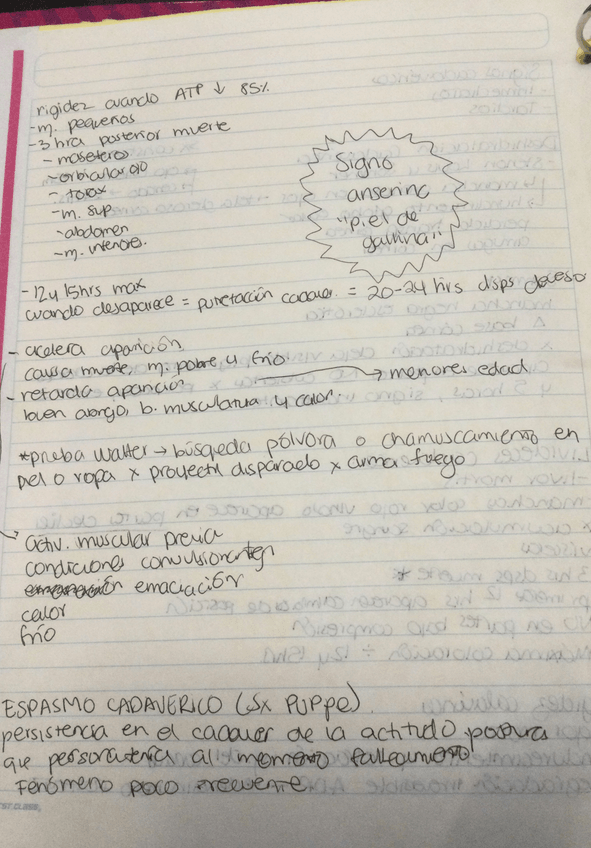 rigidez cuando ATP ↓ 85%
-m. pequeños
-3 hra posterior muerte
-maseteros
-orbicular ojo
-torax
-m. sup
-abdomen
-m. inferiores.
Signo
anserinc
"piel de
gallina"
-12 y 15hrs max
cuando desaparece = putrefacción cadaver. = 20-24 hrs disps deceso
- acelera aparición
causa muerte, m. pobre y frío
- retarda aparición → menores edad
buen abrigo, b. musculatura y calor.
*prueba Walter → búsqueda pólvora o chamuscamiento en
piel o ropa x proyectil disparado x arma fuego
activ. muscular previa
condiciones convulsionantes
emaciación
calor
frío
ESPASMO CADAVERICO (Sx PUPPE)
persistencia en el cadaver de la actitud o postura
que persona tenía al momento fallecimiento
Fenómeno poco frecuente